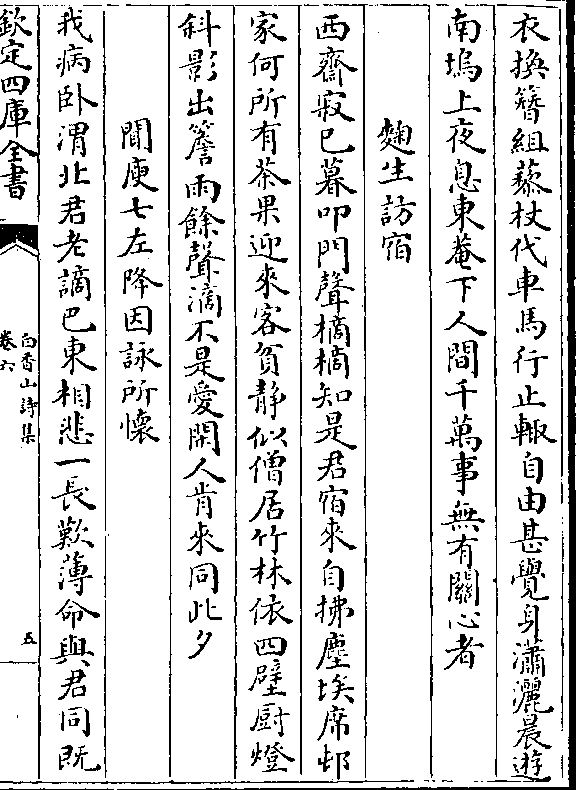 衣換簪組藜杖代車馬行止輙自由甚覺身瀟灑晨遊
南塢上夜息東菴下人間千萬事無有關心者
麴生訪宿
西齋寂已暮叩門聲樀樀知是君宿來自拂塵埃席邨
家何所有茶果迎來客貧静似僧居竹林依四壁厨燈
斜影出簷雨餘聲滴不是愛閒人肯來同此夕
聞庾七左降因詠所懷
我病卧渭北君老謫巴東相悲一長歎薄命與君同既
欽定四庫全書
白香山詩集
卷六
五